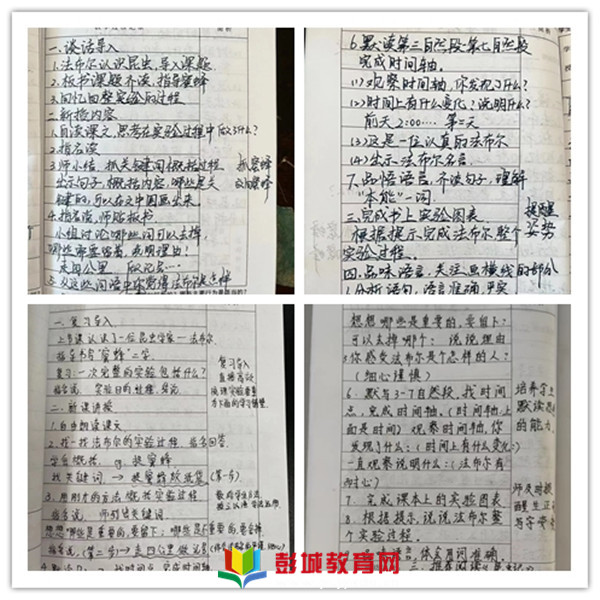 一.谈话导入
1.法布尔认识昆虫,导入课题
2.板书课题齐读,指导蜜蜂
3.回忆回整实验的过程
二.新授内容
1.自读课文,思考在实验过程中做了什么?
2.指名读
3.师小结,抓关键词概括过程.
抓蜜蜂
出示句子,概括内容,哪些是关
键的,可以在文中圈画出来
4.指名读,师贴板书
小组讨论哪些词可以去掉,
哪些需要留着,说明理由!
6.默读第三自然段-第七自然段
完成时间轴.
(1)观察时间轴,你发现了什么?
(2)时间上有什么变化?说明什么?
前天 2:00…… 第二天
(3)这是一位认真的法布尔
(4)出示法布尔名言.
7.品悟语言,齐读句子,理解
"本能"一词.
三.完成书上实验图表
提醒
姿势
根据提示完成法布尔整个
实验过程.
四.品味语言,关注画横线的部分
1.分析语句,语言准确,更实
一.复习导入
上节课认识了一位昆虫学家—法布尔.
指名书写"蜜蜂"二字.
复习:一次完整的实验包括什么?
复习导入
二.新课讲授
1.自由朗读课文
2.找一找法布尔的实验过程.指名回答.
学生概括. eg.捉蜜蜂
找关键词 → 捉蜜蜂放纸袋(第一步).
3.用刚才的方法概括实验过程.
指名说. 师板书关键词.
想想哪些是重要的,要留下;
可以去掉哪个? 说说理由
5.你感受法布尔是个怎样的人?
(细心谨慎)
6.默写3-7自然段.找时间
点,完成时间轴.(时间轴上
面是时间) 观察时间轴,你
发现了什么:(时间上有什么变化:)
一直观察说明什么:(法布尔有
耐心)
培养学生
默读思考
的能力.
7.完成课本上的实验图表
8.根据提示,说说法布尔整
个实验过程.
师及时提
醒坐正
彭城教育网